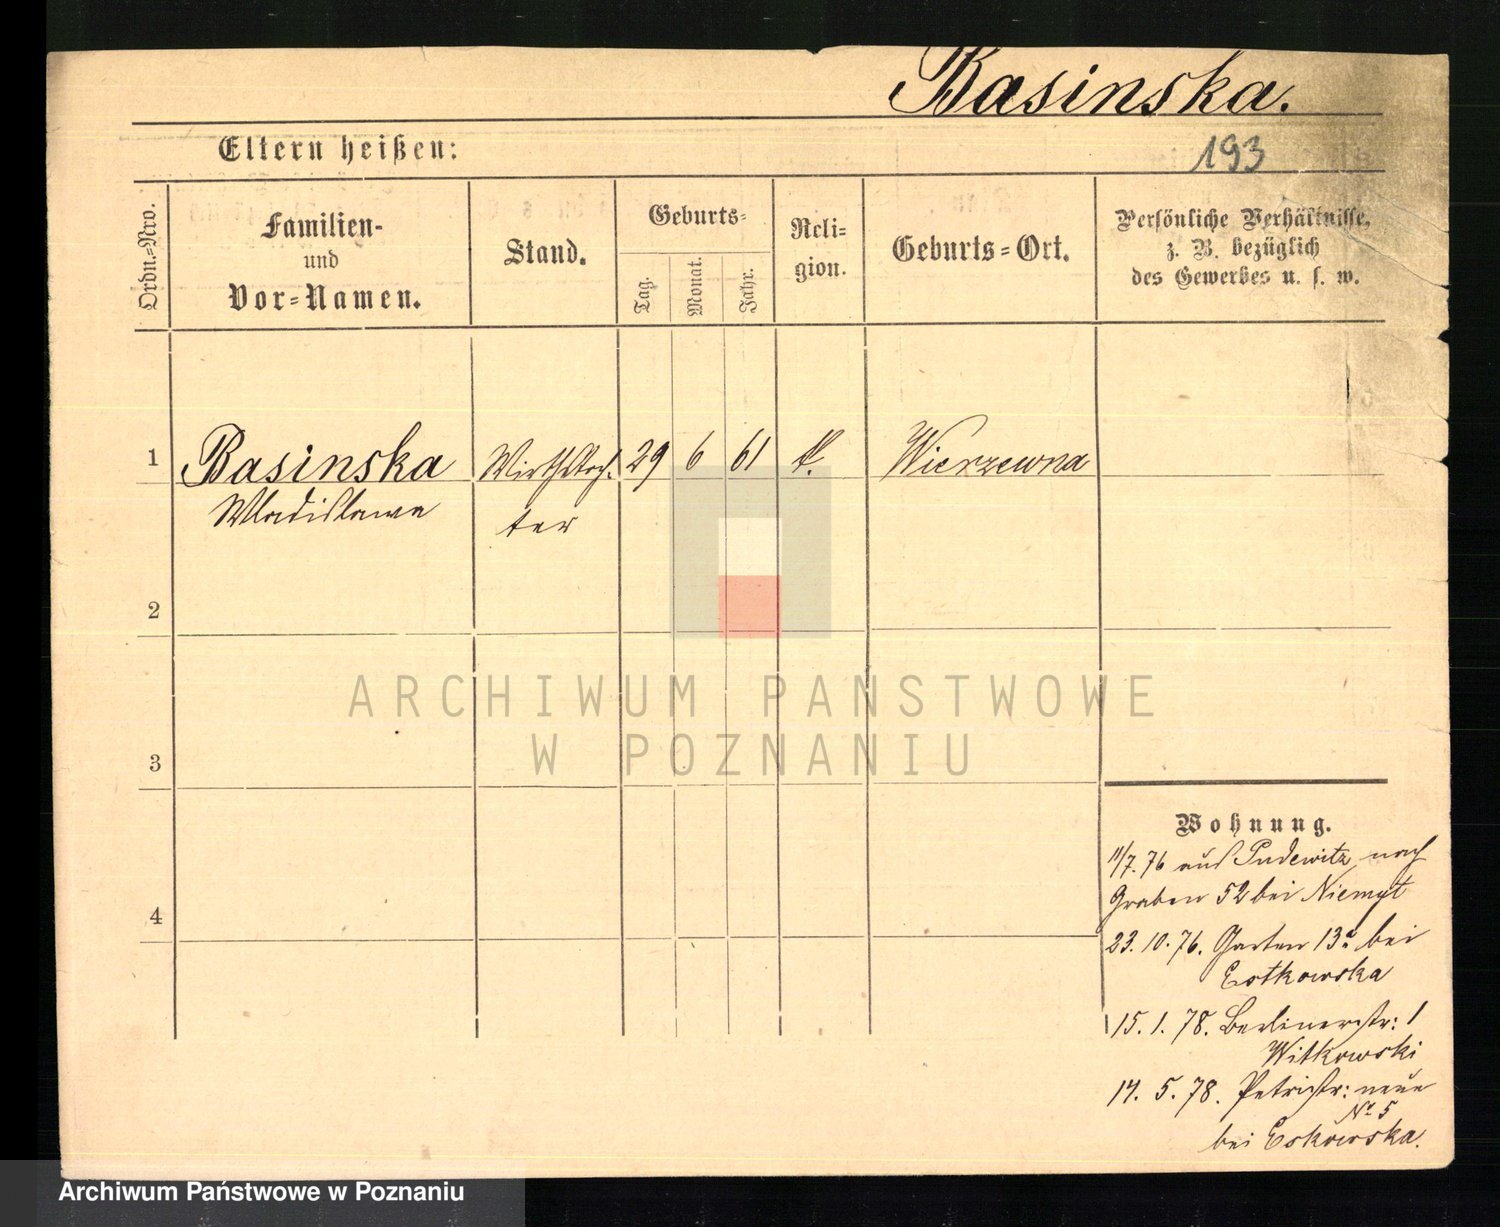 Basinska.
Eltern heißen:
193
Ordn.=Nro.
Familien-
und
Vor=Namen.
Stand.
Geburts=
Tag.
Monat.
Jahr.
Reli=
gion.
Geburts=Ort.
Persönliche Verhältnisse,
z. B. bezüglich
des Gewerbes u. s. w.
1
Basinska
Wladislawa
Wirthstoch-
ter
29
6
61
k.
Wierzewna
2
3
4
ARCHIWUM PAŃSTWOWE
W POZNANIU
Wohnung.
11/7. 76 aus Pudewitz nach
Graben 52 bei
23. 10. 76. Garten 13a bei
15. 1. 78. Berlinerstr: 1
Witkowski
5. 78. Petristr: neue
No 5
bei Eskowska.
Archiwum Państwowe w Poznaniu